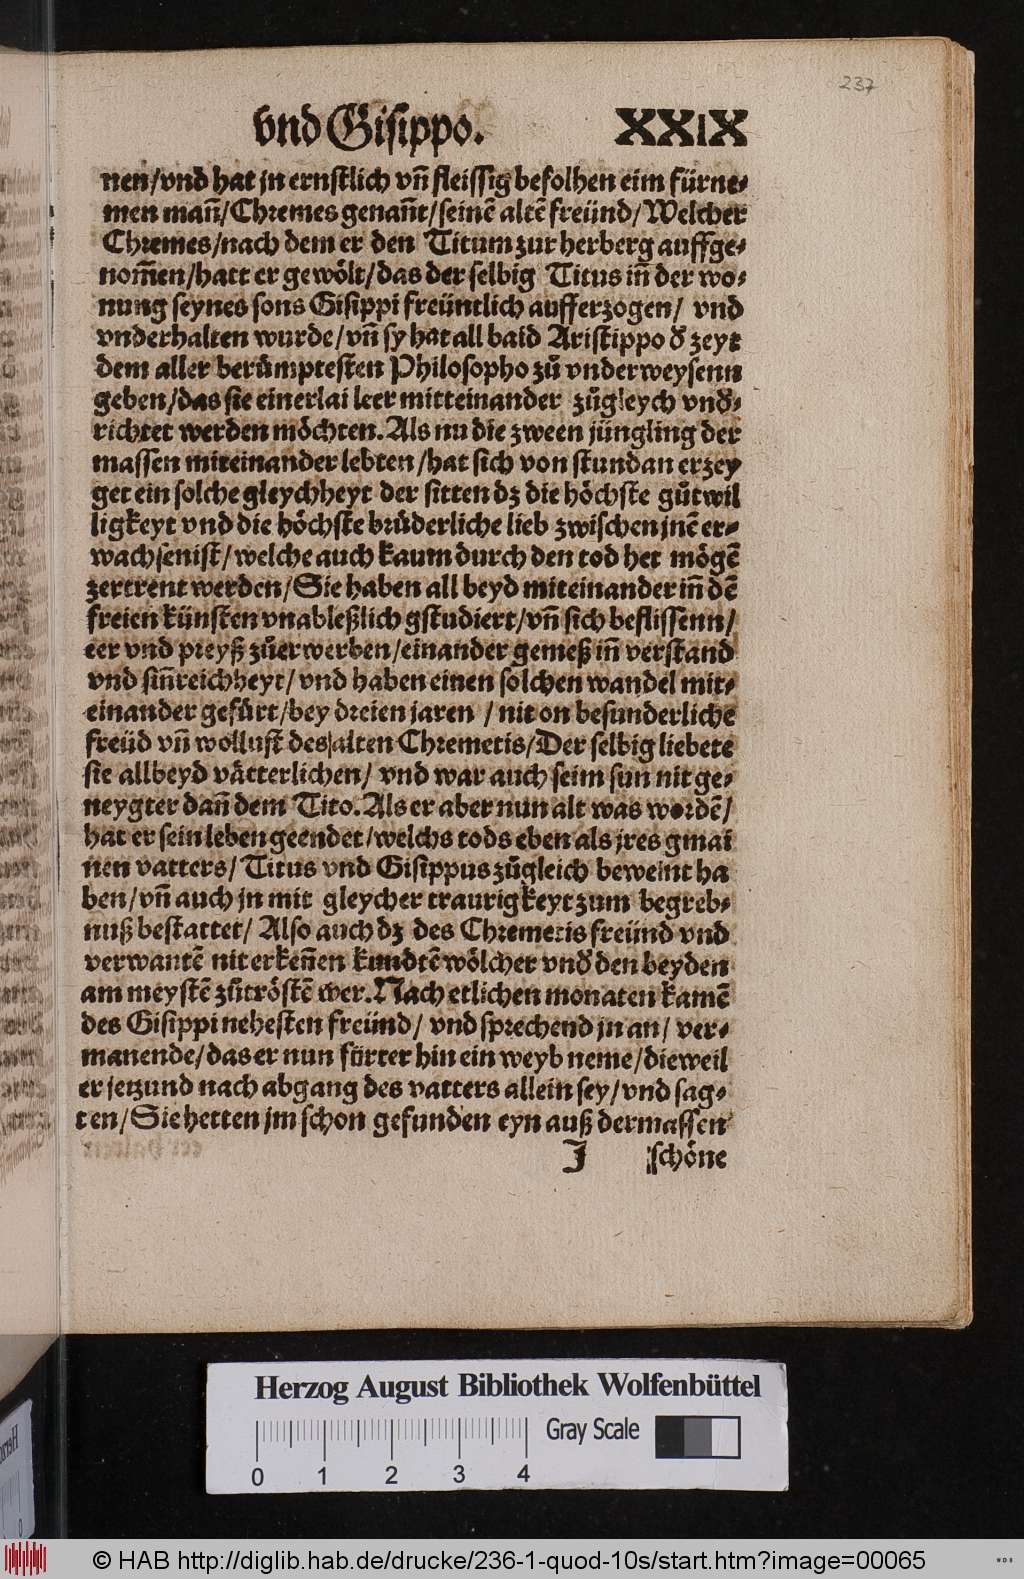 237
vnd Gisippo. XXIX
nen/vnd hat jn ernstlich vn̄ fleissig befolhen eim fürne⸗
men man̄/Chremes genan̄t/seinē altē freünd/Welcher
Chremes/nach dem er den Titum zur herberg auffge⸗
nom̄en/hatt er gewölt/das der selbig Titus in̄ der wo⸗
nung seynes sons Gisippi freüntlich aufferzogen/ vnd
vnderhalten wurde/vn̄ sy hat all baid Aristippo ð zeyt
dem aller berůmptesten Philosopho zů vnderweysenn
geben/das sie einerlai leer mitteinander zůgleych vnð⸗
richtet werden möchten. Als nu die zween jüngling der
massen miteinander lebten/hat sich von stundan erzey
get ein solche gleychheyt der sitten dz die höchste gůtwil
ligkeyt vnd die höchste brůderliche lieb zwischen jnē er⸗
wachsenist/welche auch kaum durch den tod het mögē
zertrent werden/Sie haben all beyd miteinander in̄ dē
freien künsten vnableßlich gstudiert/vn̄ sich beflissenn/
eer vnd preyß zůerwerben/einander gemeß in̄ verstand
vnd sin̄reichheyt/vnd haben einen solchen wandel mit⸗
einander gefürt/bey dreien jaren / nit on besunderliche
freüd vn̄ wollust des alten Chremetis/Der selbig liebete
sie allbeyd vätterlichen/ vnd war auch seim sun nit ge⸗
neygter dan̄ dem Tito. Als er aber nun alt was wordē/
hat er sein leben geendet/welchs tods eben als jres gmai
nen vatters/Titus vnd Gisippus zůgleich beweint ha
ben/vn̄ auch jn mit gleycher traurigkeyt zum begreb⸗
nuß bestattet/ Also auch dz des Chremetis freünd vnd
verwantē nit erken̄en kundtē wölcher vnð den beyden
am meystē zůtröstē wer. Nach etlichen monaten kamē
des Gisippi nehesten freünd/ vnd sprechend jn an/ ver⸗
manende/das er nun fürter hin ein weyb neme/dieweil
er jetzund nach abgang des vatters allein sey/vnd sag⸗
ten/Sie hetten jm schon gefunden eyn auß dermassen
J schöne
Herzog August Bibliothek Wolfenbüttel
Gray Scale
0 1 2 3 4
© HAB http://diglib.hab.de/drucke/236-1-quod-10s/start.htm?image=00065